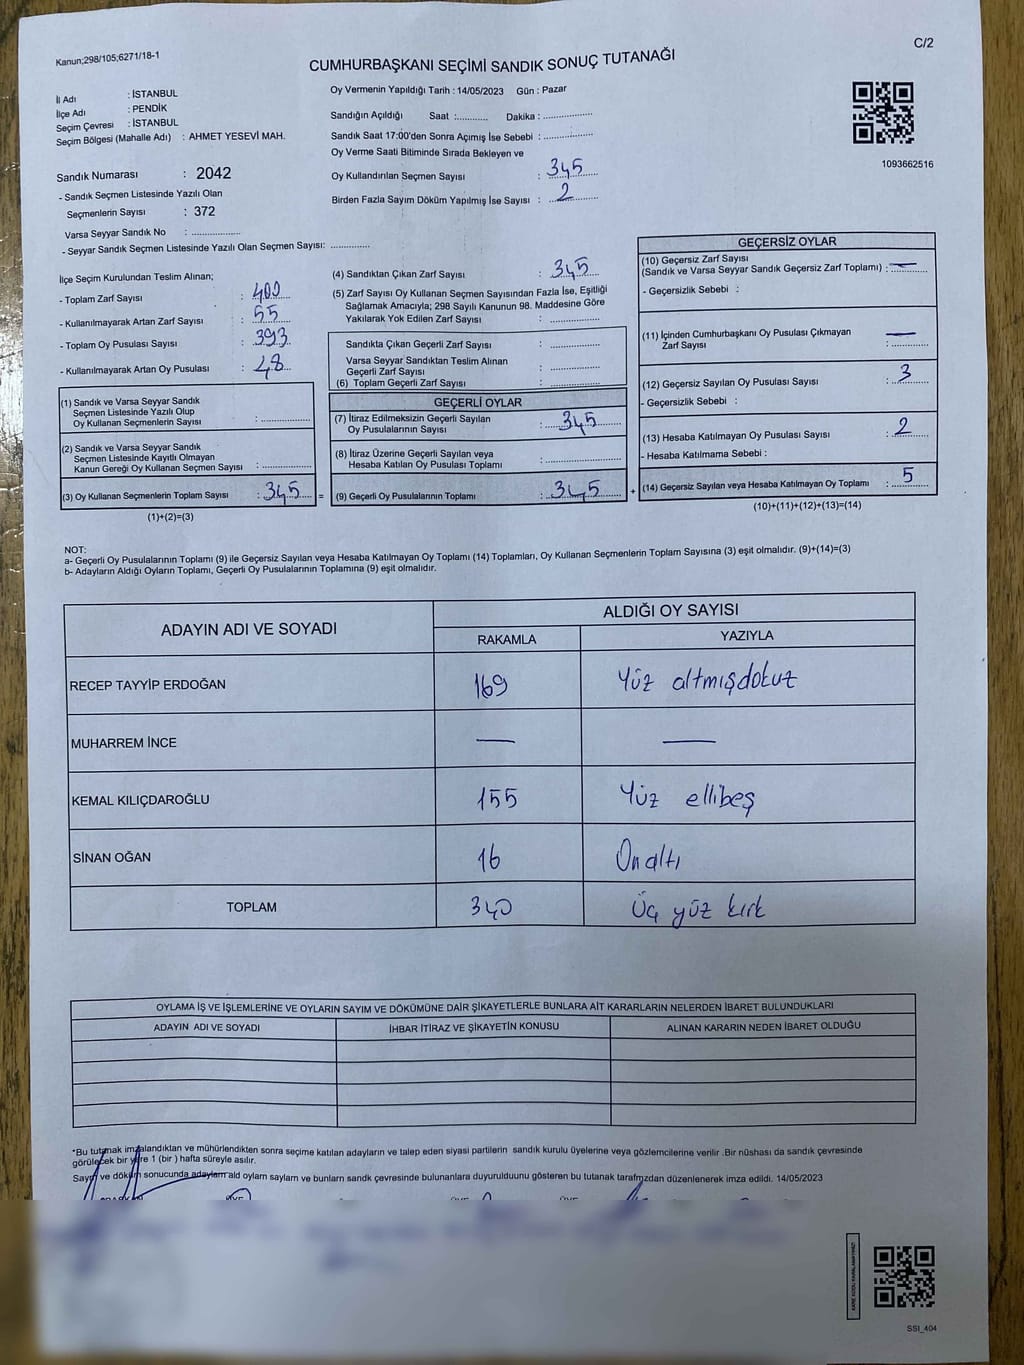 Kanun;298/105;6271/18-1
C/2
CUMHURBAŞKANI SEÇİMİ SANDIK SONUÇ TUTANAĞI
İl Adı : İSTANBUL
İlçe Adı : PENDİK
Seçim Çevresi : İSTANBUL
Seçim Bölgesi (Mahalle Adı) : AHMET YESEVİ MAH.
Oy Vermenin Yapıldığı Tarih : 14/05/2023 Gün : Pazar
Sandığın Açıldığı Saat :........... Dakika :................
Sandık Saat 17:00'den Sonra Açımış İse Sebebi :................
Oy Verme Saati Bitiminde Sırada Bekleyen ve
Oy Kullandırılan Seçmen Sayısı : 345
Birden Fazla Sayım Döküm Yapılmış İse Sayısı : 2
1093662516
Sandık Numarası : 2042
- Sandık Seçmen Listesinde Yazılı Olan
Seçmenlerin Sayısı : 372
Varsa Seyyar Sandık No : ................
- Seyyar Sandık Seçmen Listesinde Yazılı Olan Seçmen Sayısı: .............
İlçe Seçim Kurulundan Teslim Alınan;
- Toplam Zarf Sayısı : 400
- Kullanılmayarak Artan Zarf Sayısı : 55
- Toplam Oy Pusulası Sayısı : 393
- Kullanılmayarak Artan Oy Pusulası : 48
(1) Sandık ve Varsa Seyyar Sandık
Seçmen Listesinde Yazılı Olup
Oy Kullanan Seçmenlerin Sayısı :................
(2) Sandık ve Varsa Seyyar Sandık
Seçmen Listesinde Kayıtlı Olmayan
Kanun Gereği Oy Kullanan Seçmen Sayısı :................
(3) Oy Kullanan Seçmenlerin Toplam Sayısı : 345 =
(1)+(2)=(3)
(4) Sandıktan Çıkan Zarf Sayısı : 345
(5) Zarf Sayısı Oy Kullanan Seçmen Sayısından Fazla İse, Eşitliği
Sağlamak Amacıyla; 298 Sayılı Kanunun 98. Maddesine Göre
Yakılarak Yok Edilen Zarf Sayısı : ................
Sandıkta Çıkan Geçerli Zarf Sayısı : ................
Varsa Seyyar Sandıktan Teslim Alınan
Geçerli Zarf Sayısı : ................
(6) Toplam Geçerli Zarf Sayısı : ................
GEÇERLİ OYLAR
(7) İtiraz Edilmeksizin Geçerli Sayılan
Oy Pusulalarının Sayısı : 345
(8) İtiraz Üzerine Geçerli Sayılan veya
Hesaba Katılan Oy Pusulası Toplamı :................
(9) Geçerli Oy Pusulalarının Toplamı : 345 +
GEÇERSİZ OYLAR
(10) Geçersiz Zarf Sayısı
(Sandık ve Varsa Seyyar Sandık Geçersiz Zarf Toplamı) : —
- Geçersizlik Sebebi :
(11) İçinden Cumhurbaşkanı Oy Pusulası Çıkmayan
Zarf Sayısı : —
(12) Geçersiz Sayılan Oy Pusulası Sayısı : 3
- Geçersizlik Sebebi :
(13) Hesaba Katılmayan Oy Pusulası Sayısı : 2
- Hesaba Katılmama Sebebi :
(14) Geçersiz Sayılan veya Hesaba Katılmayan Oy Toplamı : 5
(10)+(11)+(12)+(13)=(14)
NOT:
a- Geçerli Oy Pusulalarının Toplamı (9) ile Geçersiz Sayılan veya Hesaba Katılmayan Oy Toplamı (14) Toplamları, Oy Kullanan Seçmenlerin Toplam Sayısına (3) eşit olmalıdır. (9)+(14)=(3)
b- Adayların Aldığı Oyların Toplamı, Geçerli Oy Pusulalarının Toplamına (9) eşit olmalıdır.
ADAYIN ADI VE SOYADI
ALDIĞI OY SAYISI
RAKAMLA YAZIYLA
RECEP TAYYİP ERDOĞAN 169 Yüz altmışdokuz
MUHARREM İNCE — —
KEMAL KILIÇDAROĞLU 155 Yüz ellibeş
SİNAN OĞAN 16 Onaltı
TOPLAM 340 Üç yüz kırk
OYLAMA İŞ VE İŞLEMLERİNE VE OYLARIN SAYIM VE DÖKÜMÜNE DAİR ŞİKAYETLERLE BUNLARA AİT KARARLARIN NELERDEN İBARET BULUNDUKLARI
ADAYIN ADI VE SOYADI İHBAR İTİRAZ VE ŞİKAYETİN KONUSU ALINAN KARARIN NEDEN İBARET OLDUĞU
*Bu tutanak imzalandıktan ve mühürlendikten sonra seçime katılan adayların ve talep eden siyasi partilerin sandık kurulu üyelerine veya gözlemcilerine verilir .Bir nüshası da sandık çevresinde
görülecek bir yere 1 (bir ) hafta süreyle asılır.
Sayım ve döküm sonucunda adayların ald oyların sayların ve bunların sandk çevresinde bulunanlara duyurulduunu gösteren bu tutanak tarafmzdan düzenlenerek imza edildi. 14/05/2023
SSI_404